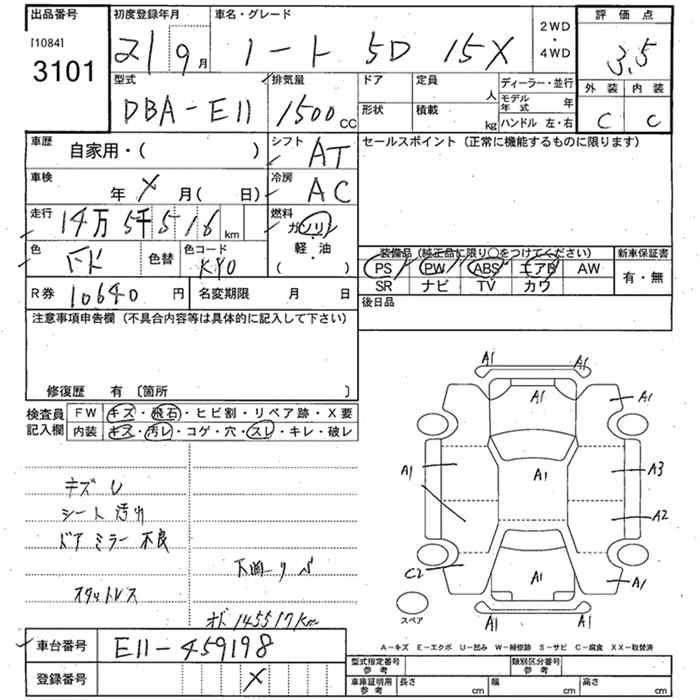 出品番号 初度登録年月 車名・グレード 2WD・4WD 評価点
[1084]
3101 21 9月 ノート 5D 15X 3.5
型式 排気量 ドア 定員 人 ディーラー・並行 外装 内装
DBA-E11 1500CC 形状 積載 kg モデル年式 年 C C
ハンドル 左・右
車歴 自家用・( ) シフト AT セールスポイント (正常に機能するものに限ります)
車検 年 X 月( 日) 冷房 AC
走行 14万5千516km 燃料 ガソリン・軽・油( )
色 色替 色コード KY0 装備品 (純正品に限り○をつけてください) 新車保証書
PS PW ABS エアB AW 有・無
SR ナビ TV カワ
R券 10640円 名変期限 月 日 後日品
注意事項申告欄 (不具合内容等は具体的に記入して下さい)
修復歴 有 [箇所 ]
検査員記入欄 FW キズ・飛石・ヒビ割・リペア跡・X要
内装 キズ・汚レ・コゲ・穴・スレ・キレ・破レ
キズU
シート汚れ
ドアミラー不良
下廻りサビ
スタットレス
オド 145517km
A1 A1
A1 A1
A1 A1 A3
A2
C2 A1 A1
スペア A1 A1
A-キズ E-エクボ U-凹み W-補修跡 S-サビ C-腐食 XX-取替済
車台番号 E11-459198
型式指定番号 参考 類別区分番号 参考
登録番号 X
車庫証明用 参考 長さ cm 幅 cm 高さ cm